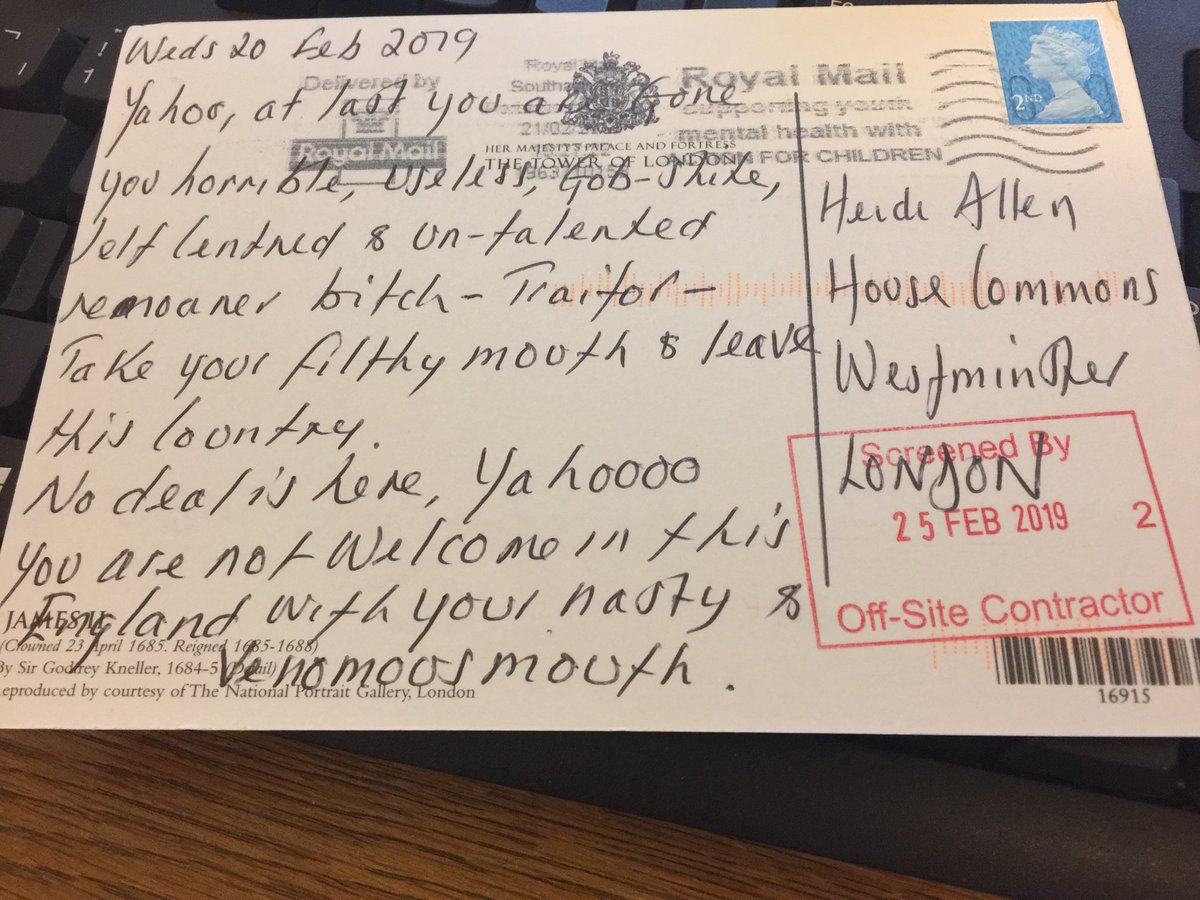 Weds 20 Feb 2019
Yahoo, at last you are Gone
you horrible, useless, Gob-Shite,
self Centred & un-talented
remoaner bitch - Traitor -
Take your filthy mouth & leave
this Country.
No deal is here, Yahoooo
you are not Welcome in this
England with your nasty &
Venomoos mouth.
Delivered by
Royal Mail
Royal
South
21/02/
HER MAJESTY'S PALACE AND FORTRESS
THE TOWER OF LONDON
Royal Mail
supporting youth
mental health with
FOR CHILDREN
2ND
Heidi Allen
House Commons
Westminster
LONDON
Screened By
25 FEB 2019 2
Off-Site Contractor
JAMES II
(Crowned 23 April 1685. Reigned 1685-1688)
By Sir Godfrey Kneller, 1684-5 (Detail)
eproduced by courtesy of The National Portrait Gallery, London
16915